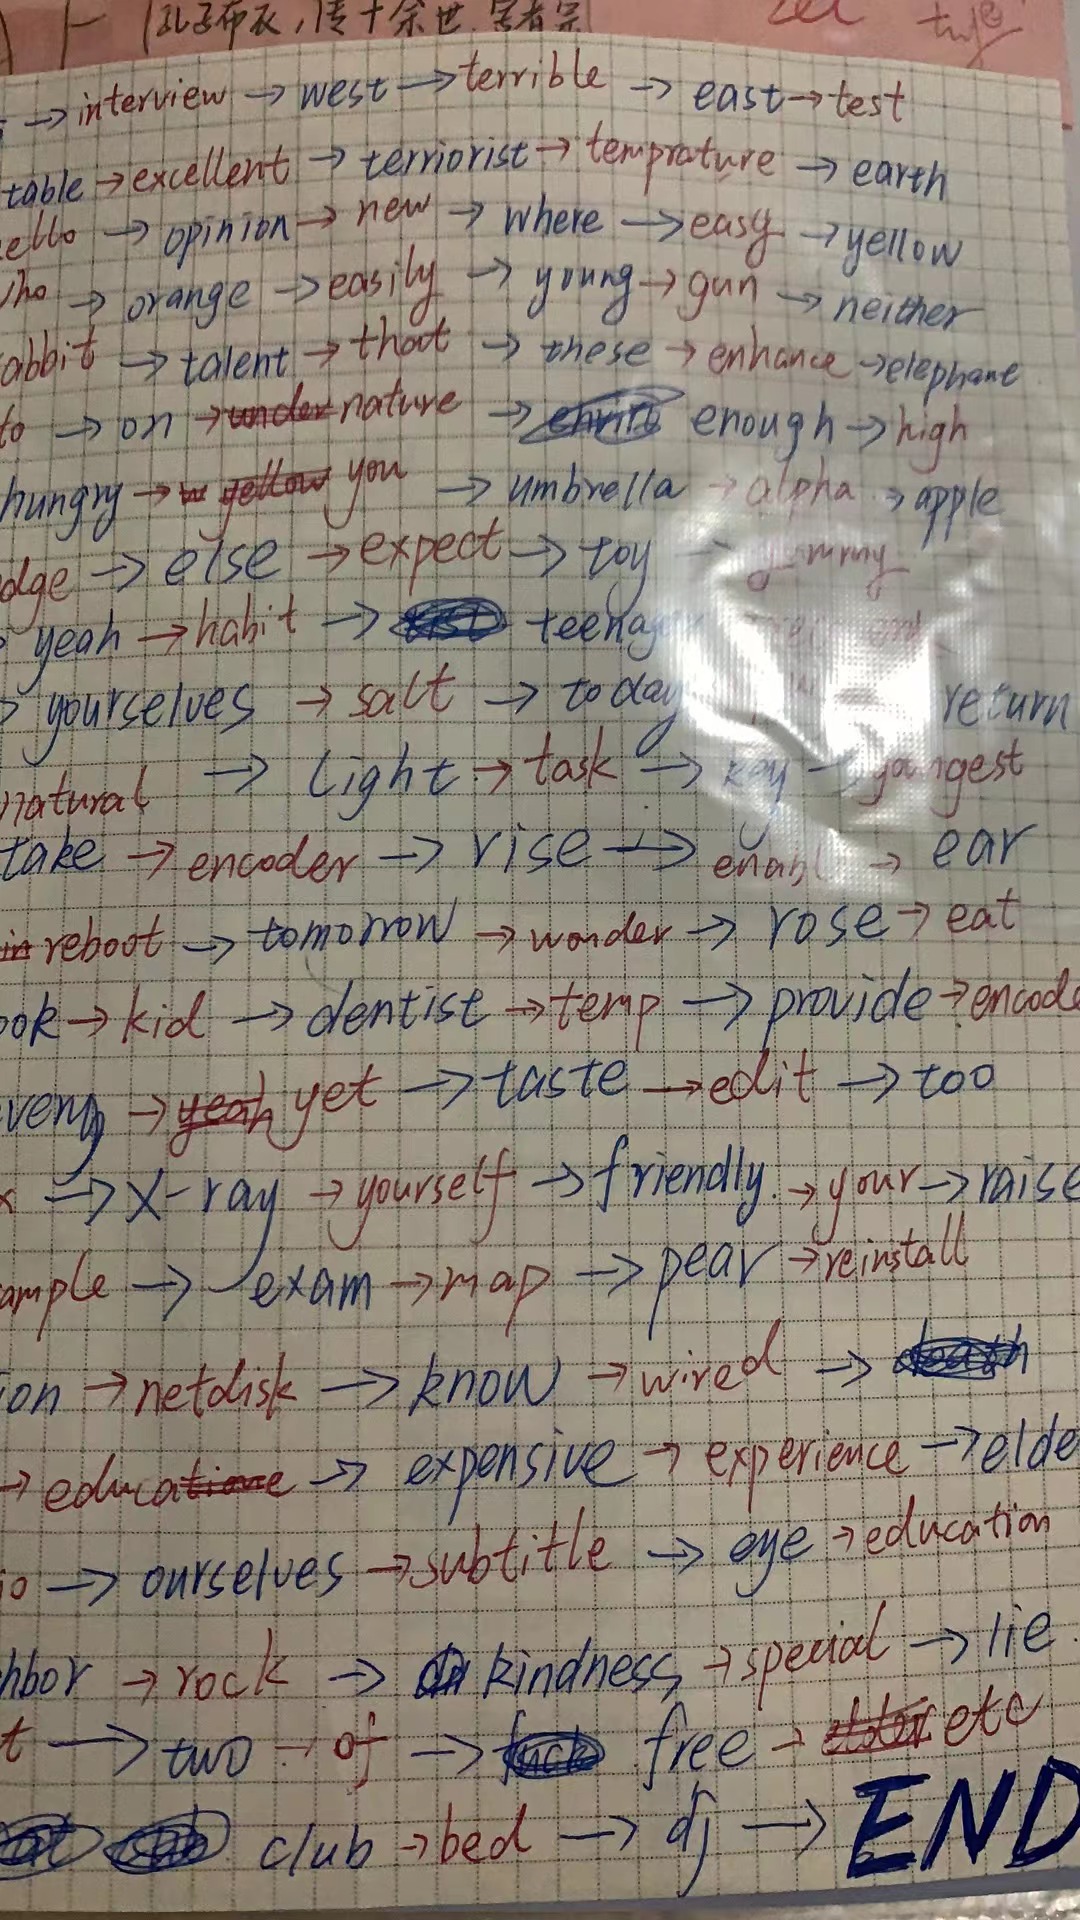 孔子布衣,传十余世,学者宗
→interview→west→terrible→east→test
table→excellent→terriorist→temprature→earth
→opinion→new→where→easy→yellow
→orange→easily→young→gun→neither
abbit→talent→that→these→enhance→elephant
to→on→under nature→enough→high
hungry→yellow you→umbrella→alpha→apple
dge→else→expect→toy→yummy
yeah→habit→teenag
→yourselves→salt→today return
natural→light→task→key→youngest
take→encoder→rise→enabl→ear
in reboot→tomorrow→wonder→rose→eat
ook→kid→dentist→temp→provide→encode
very→yeah yet→taste→edit→too
x→x-ray→yourself→friendly→your→raise
ample→exam→map→pear→reinstall
ion→netdisk→know→wired→death
→educatione→expensive→experience→elde
io→ourselves→subtitle→eye→education
hbor→rock→kindness→special→lie
t→two→of→fuck free→etc
club→bed→dj→END